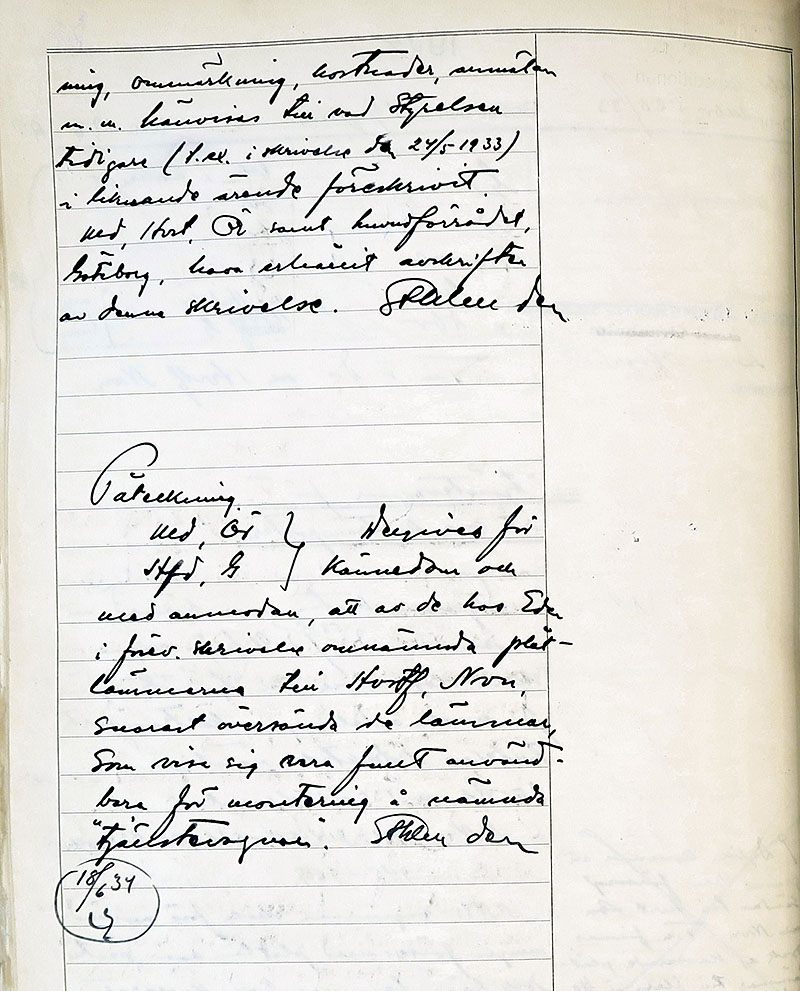 ning, anmärkning, kostnader, anmälan
m.m. hänvisas till vad Styrelsen
tidigare (t.ex. i skrivelse den 24/5-1933)
i liknande ärende föreskrivit.
Md, Hvst, Ör samt huvudförrådet,
Göteborg, hava erhållit avskrifter
av denna skrivelse. Sthlm den
Påteckning
Md, Ör } Delgives för
Hfd, G } kännedom och
med anmodan, att av de hos Eder
i förev. skrivelse omnämnda plåt-
lämmarna till Hvst, Nvn,
snarast översända de lämmar,
som visa sig vara fullt använd-
bara för montering å nämnda
"tjänstevagnar". Sthlm den
18/6 34